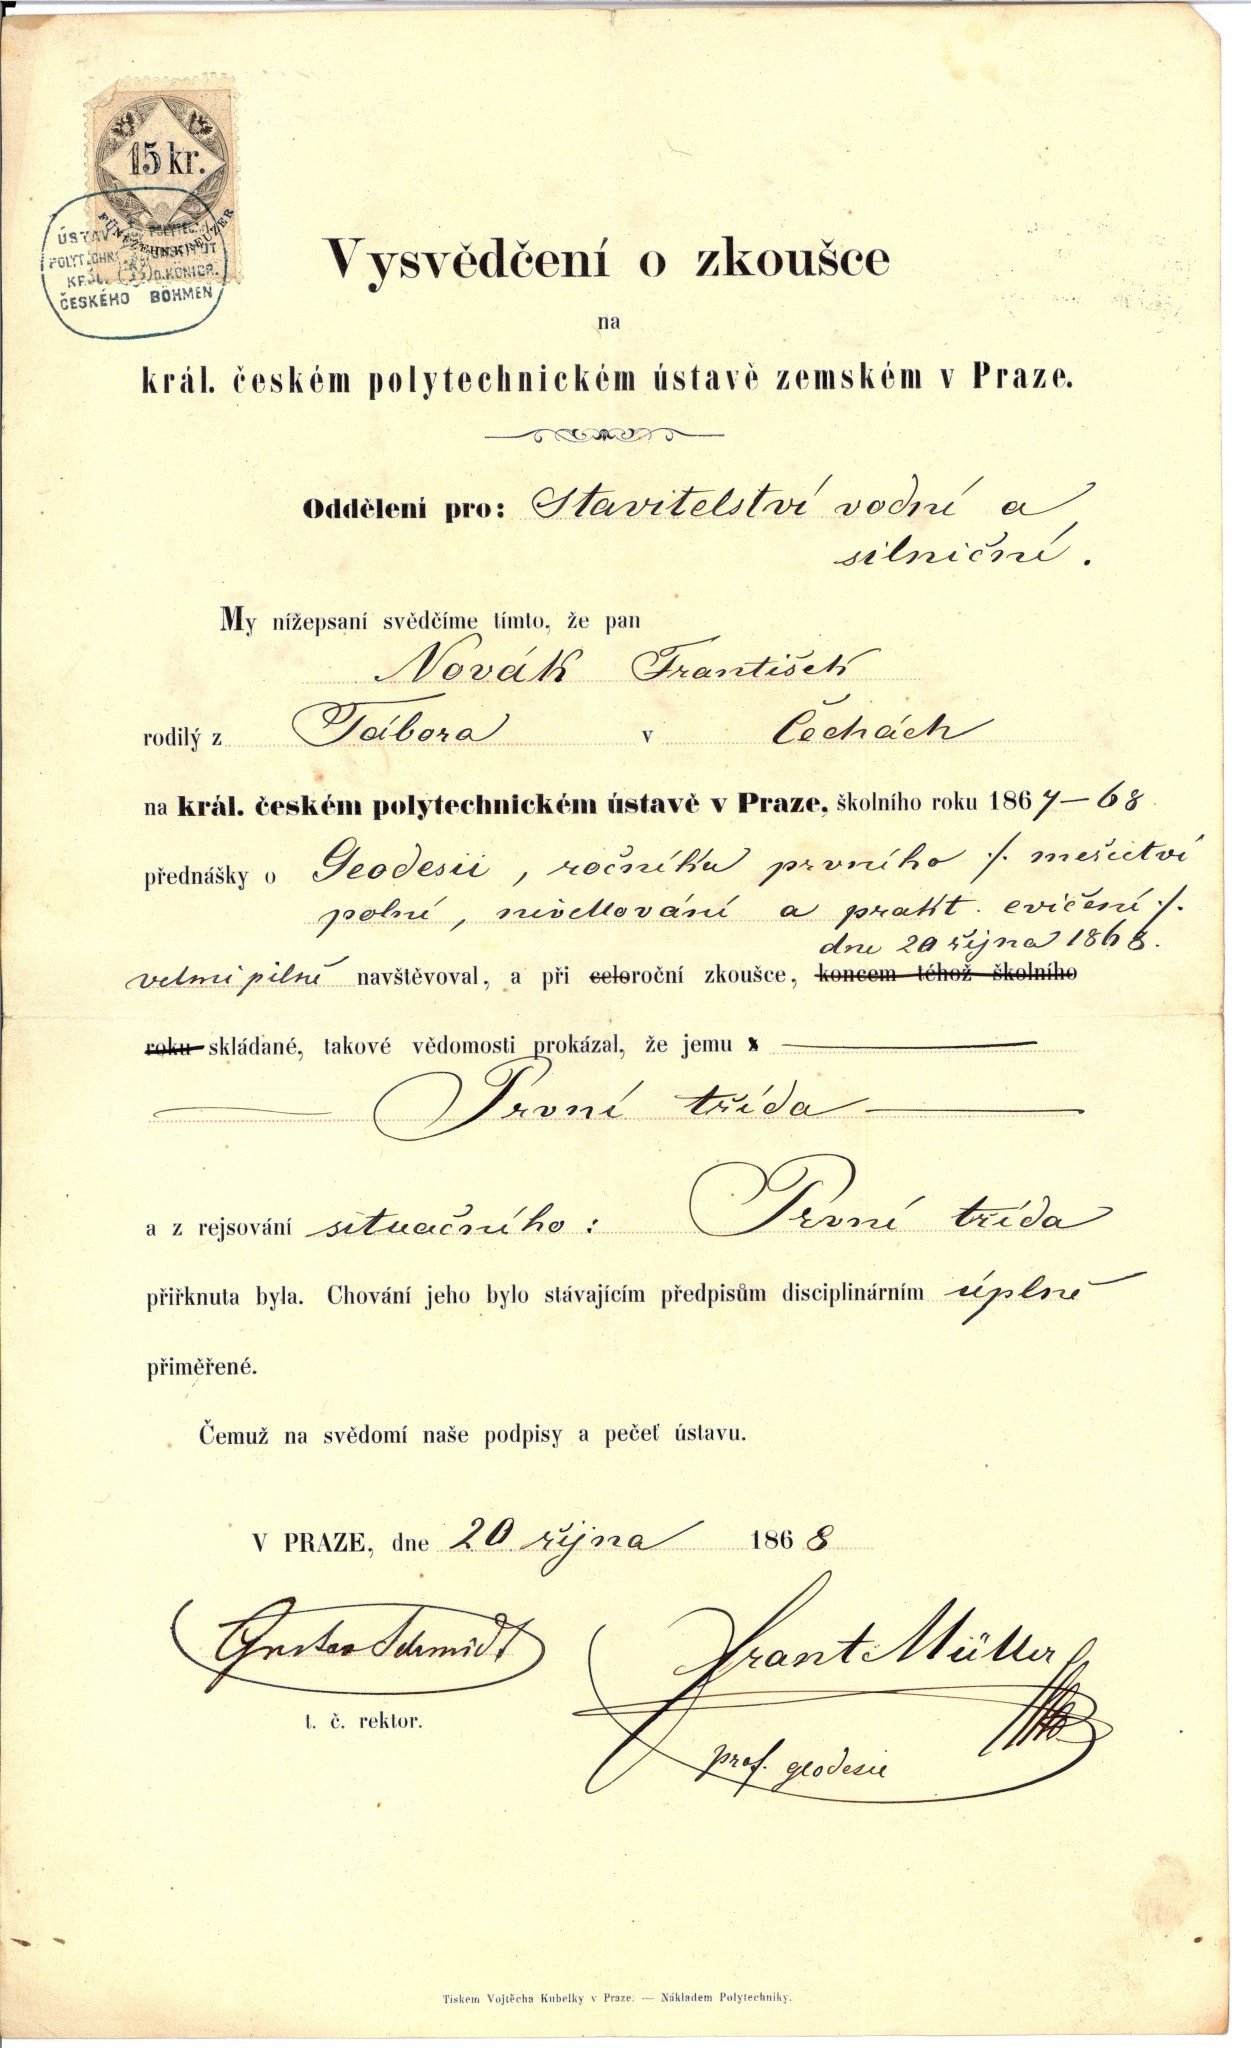 15 kr.
FÜNFZEHN KREUZER
ÚSTAV
ČESKÉHO BÖHMEN
Vysvědčení o zkoušce
na
král. českém polytechnickém ústavě zemském v Praze.
Oddělení pro: Stavitelství vodní a
silniční.
My nížepsaní svědčíme tímto, že pan
Novák František
rodilý z Tábora v Čechách
na král. českém polytechnickém ústavě v Praze, školního roku 1867–68
přednášky o Geodesii, ročníku prvního :/. měřictví
polní, nivellování a prakt. cvičení :/.
dne 20 října 1868.
velmi pilně navštěvoval, a při celoroční zkoušce, koncem téhož školního
roku skládané, takové vědomosti prokázal, že jemu z
První třída
a z rejsování situačního: První třída
přiřknuta byla. Chování jeho bylo stávajícím předpisům disciplinárním úplně
přiměřené.
Čemuž na svědomí naše podpisy a pečeť ústavu.
V PRAZE, dne 20 října 1868
Gustav Schmidt
Frant. Müller
t. č. rektor.
prof. geodesie
Tiskem Vojtěcha Kubelky v Praze. — Nákladem Polytechniky.